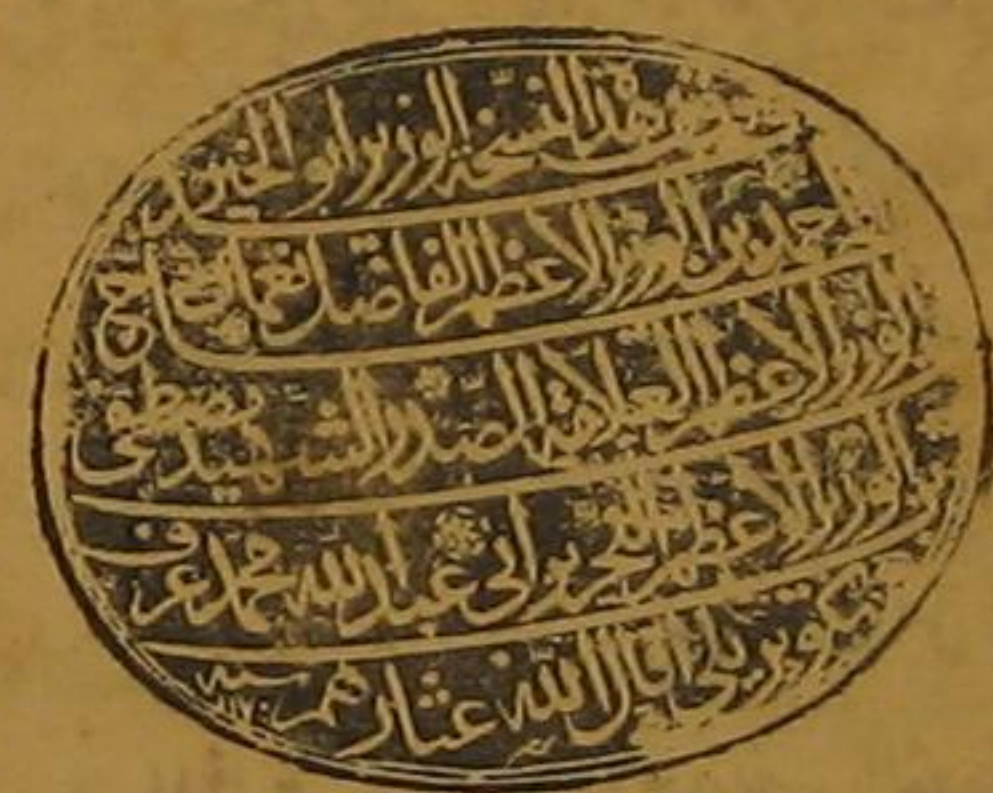 هذه النسخة الوزير ابو الخير
احمد بن الوزير الاعظم الفاضل نعمان
الوزير الاعظم العلامة الصدر الشهيد مصطفى
بن الوزير الاعظم النحرير ابي عبد الله محمد عرف
بكوپريلي اقال الله عثارهم سنة